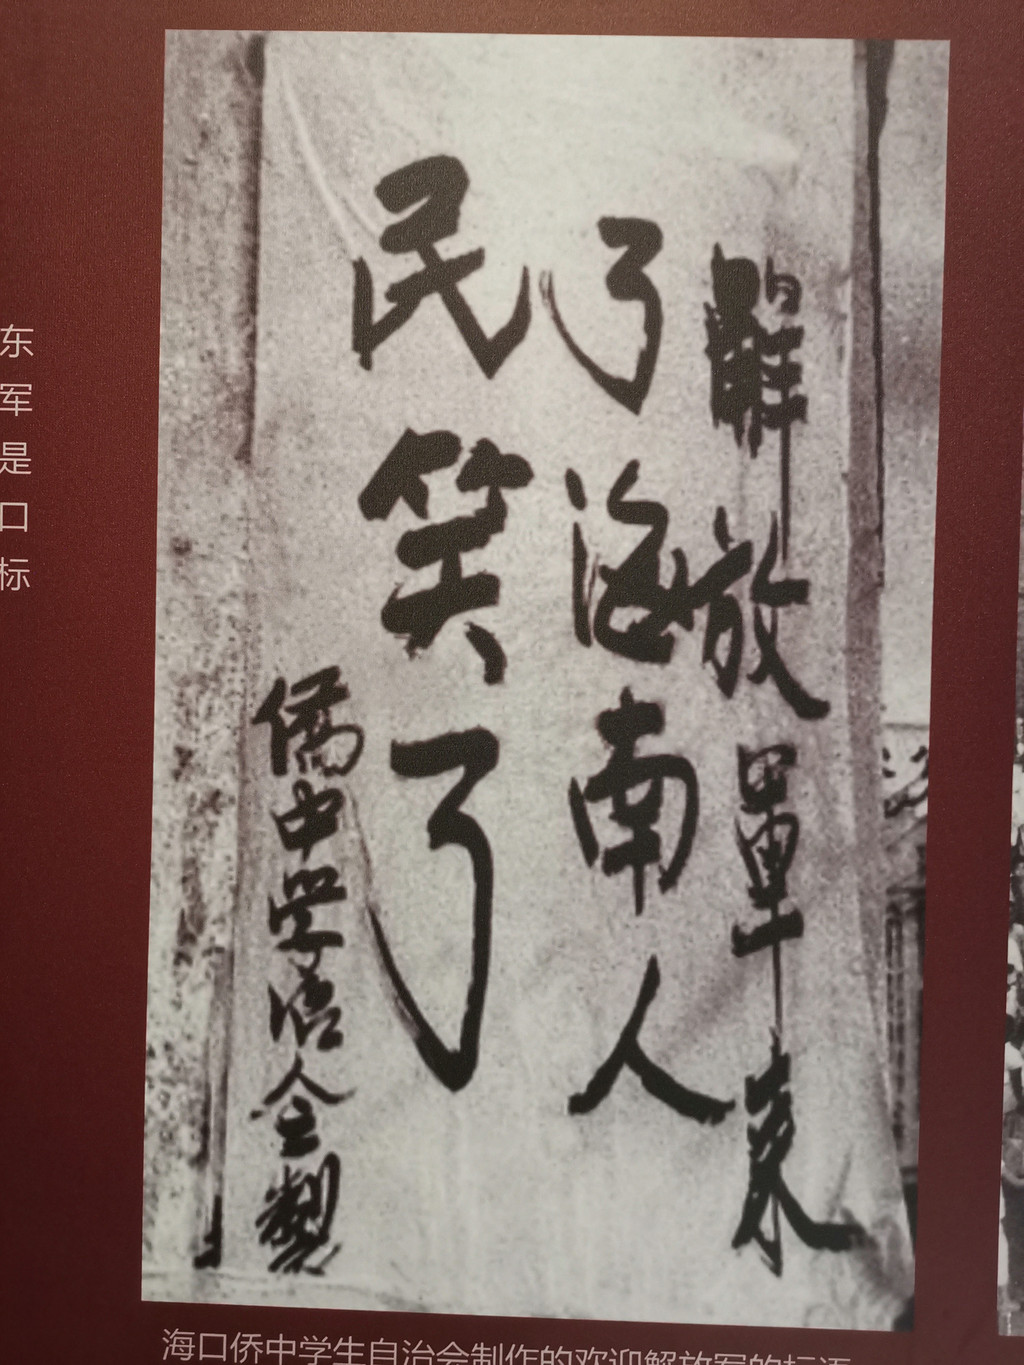 解放军来
了海南人
民笑了
侨中学治会制
海口侨中学生自治会制作的欢迎解放军的标语
东
军
是
口
标